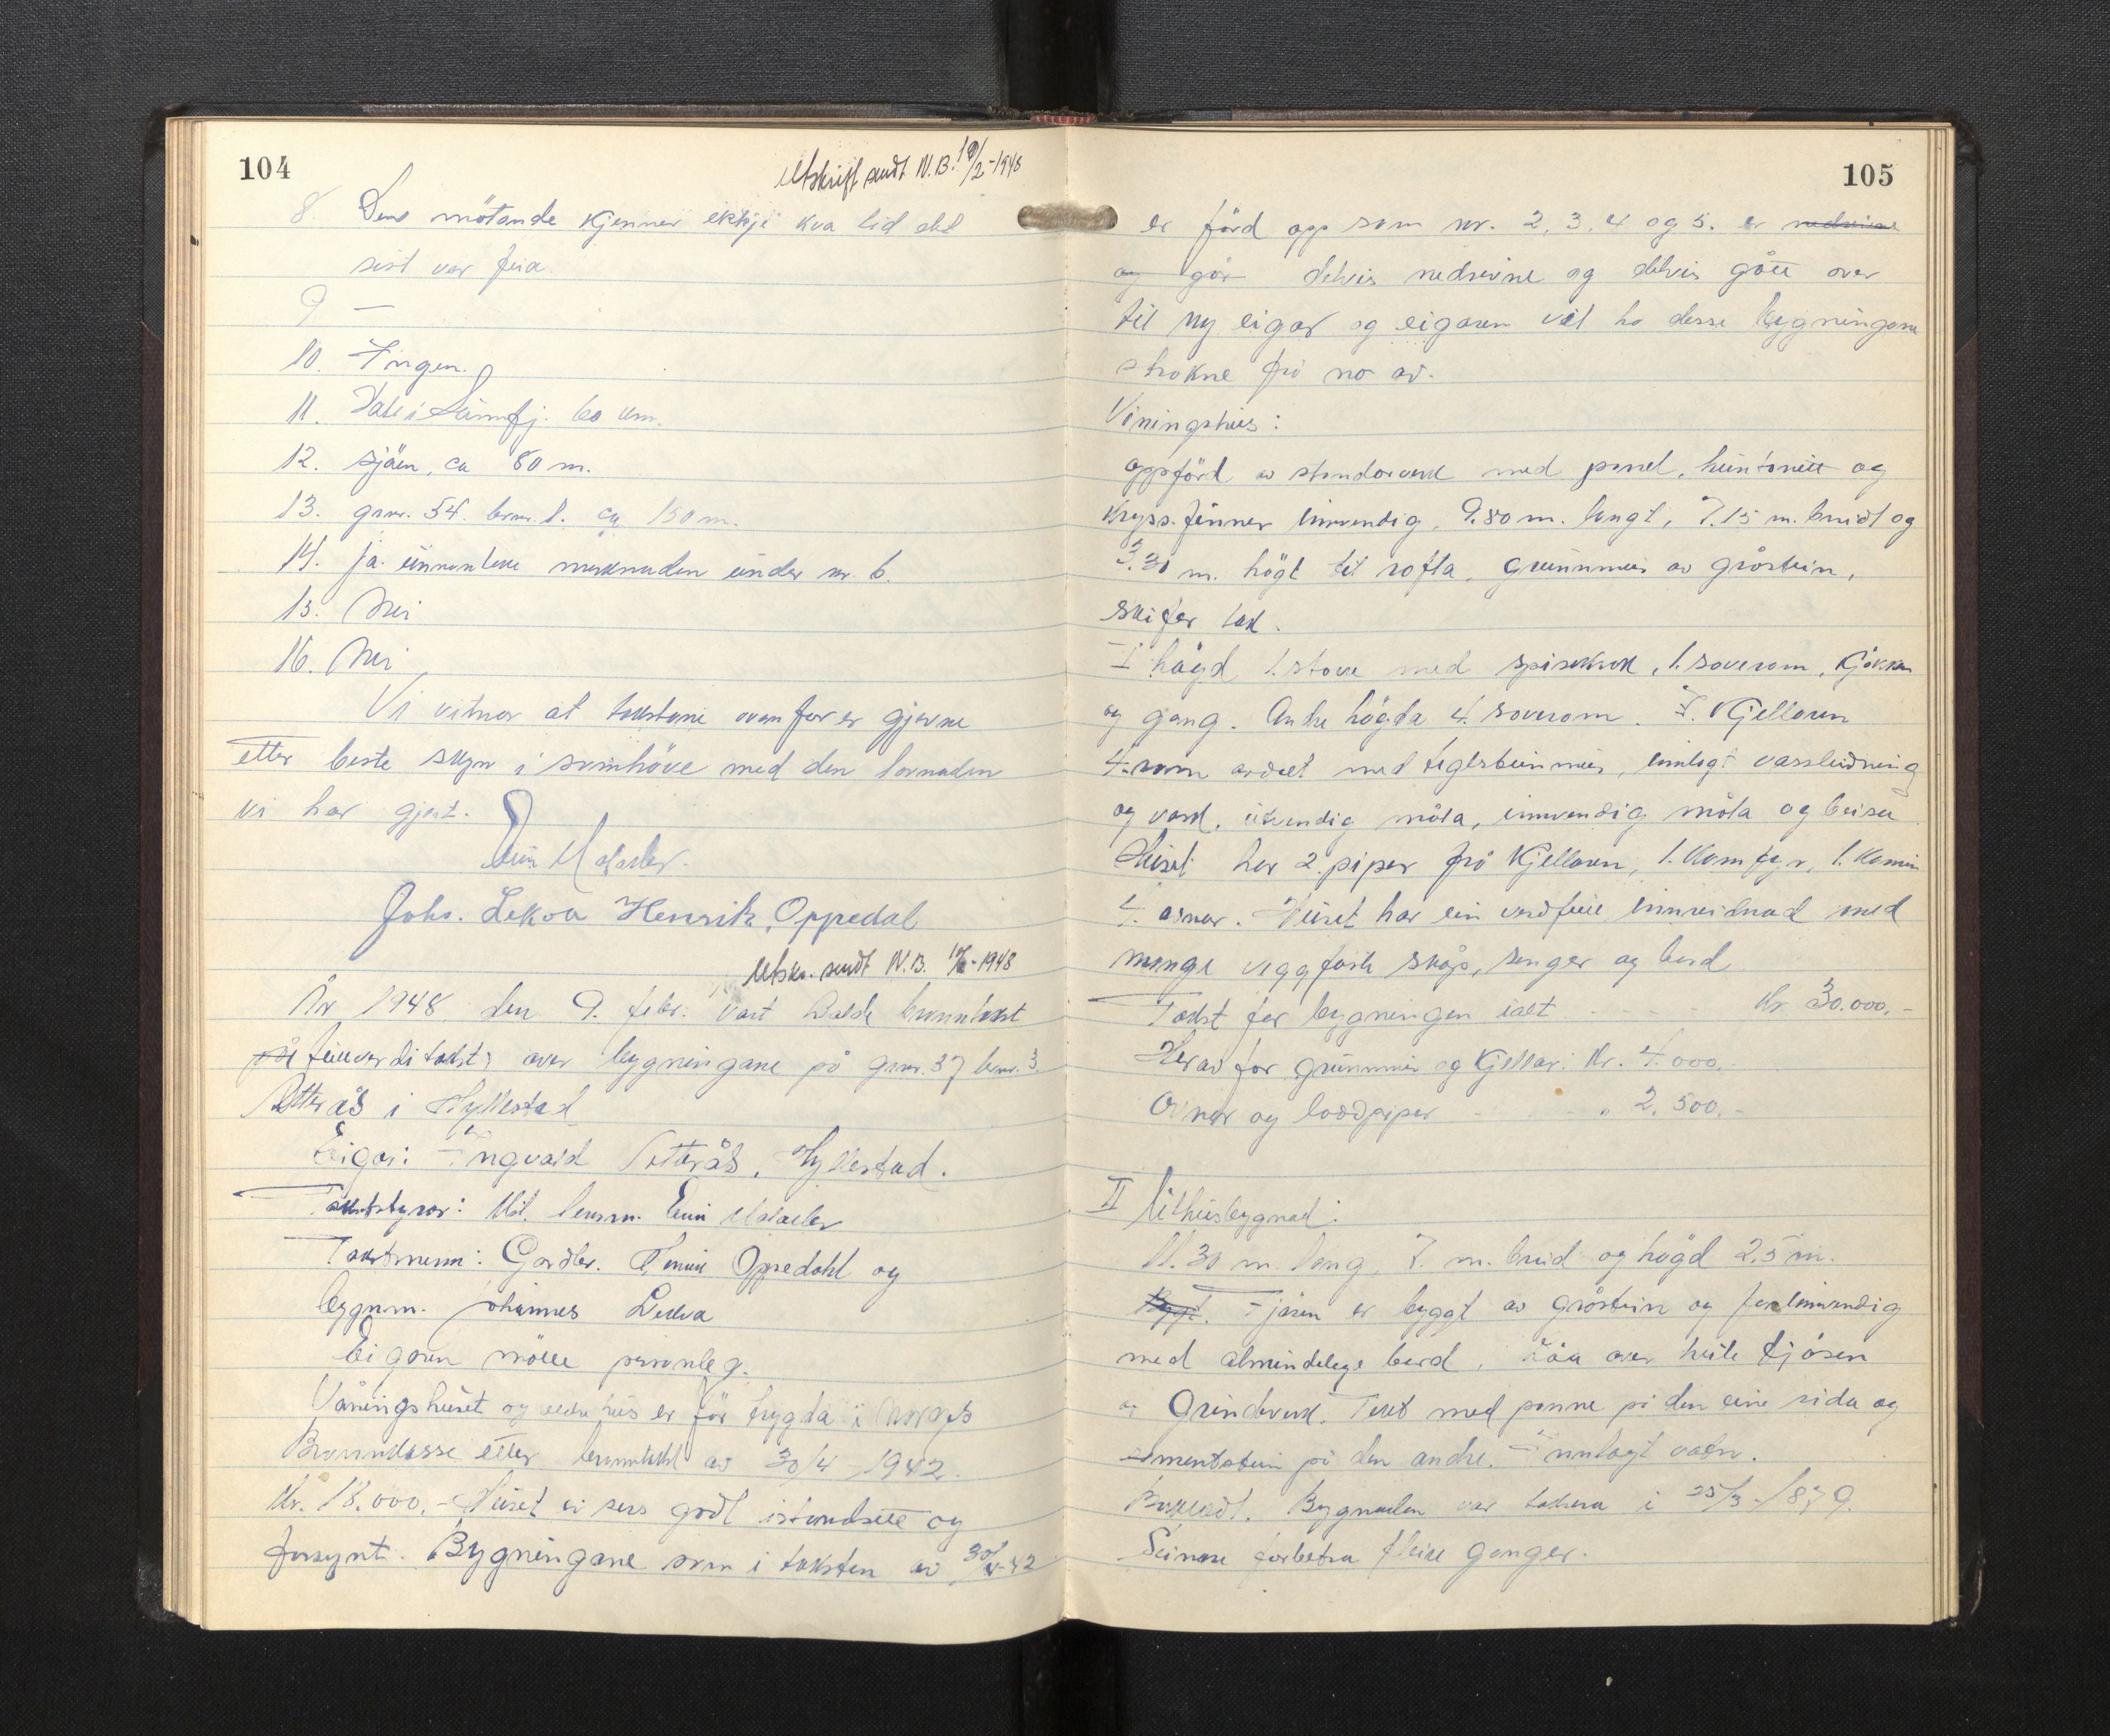 104
Utskrift sendt N.B. 10/2-1948
8. Dene mötande kjenner ikkje kva tid det
sist var feia.
9 —
10. Ingen.
11. Dale i Sunnfj. 60 km.
12. Sjöen, ca 80 m.
13. gnr. 54. bnr. 1. ca 150 m.
14. Ja. unnanteke merknaden under nr. 6.
15. Nei
16. Nei
Vi vitnar at takstane ovanfor er gjevne
etter beste skyn i samhöve med den
vi har gjort.
Johs. Lekva Henrik Oppedal
Utskr. sendt N.B. 10/2-1948
År 1948 den 9. febr. vart halde branntakst
på fulleverditakst) over bygningane på gnr. 37 bnr. 3.
i Hyllestad
Eigar: Ingvald Hyllestad.
Takststyrar: lensm.
Takstmenn: Gardbr. Oppedahl og
bygnm. Johannes Lekva
Eigaren mötte personleg.
Våningshuset og eldhus er för trygda i Norges
Brannkasse etter branntakst av 30/4-1942.
Kr. 18.000,- Huset er sers godt istandsett og
forsynt. Bygningane som i taksten av 30/4-42
105
er förd opp som nr. 2, 3, 4 og 5. er nedrivne
og går delvis nedrivne og delvis gått over
til ny eigar og eigaren vil ha desse bygningane
strokne frå no av.
Våningshus:
oppförd av standarverk med panel, huntonitt og
kryss-finner innvendig, 9.80 m. langt, 7.15 m. breidt og
3.30 m. högt til rofta, grunnmur av gråstein,
skifer tak.
I högd 1. stove med spisekrok, 1. soverom, kjökken
og gang. Andre högda 4. soverom. I kjellaren
4. rom avdelt med teglsteinmur, innlagt vassleidning
og vask, utvendig måla, innvendig måla og beisa.
Huset har 2 piper frå kjellaren, 1. komfyr, 1. kamin
4. omnar. Huset har ein verdfull innreidnad med
mange veggfaste skåp, senger og bord
Takst for bygningen ialt - - Kr. 30.000.-
Herav for grunnmur og kjellar: Kr. 4.000.-
Omnar og loddpiper - - " 2.500.-
II Uthusbygnad:
11.30 m. lang, 7. m. breid og högd 2.5 m.
Bygt. Fjösen er byggt av gråstein og innvendig
med almindelege bord. Löa over heile fjösen
av Grindverk. Tekt med panne på den eine sida og
sementstein på den andre. Innlagt vatn.
Bygnaden var taksera i 25/3-1879.
Seinare forbetra fleire gonger.